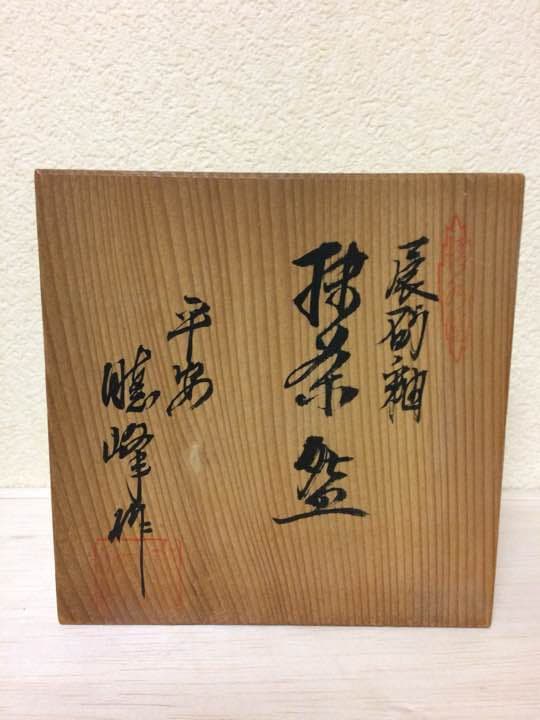 辰砂釉
抹茶盌
平安
峰作